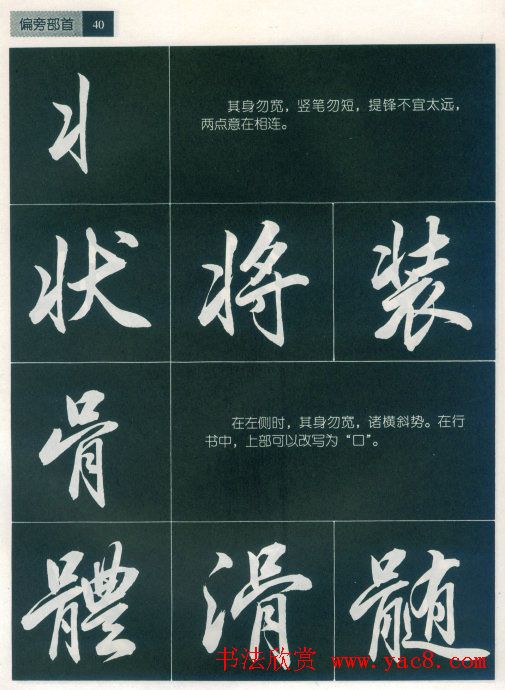 偏旁部首 40
丬
其身勿宽，竖笔勿短，提锋不宜太远，
两点意在相连。
状 将 装
骨
在左侧时，其身勿宽，诸横斜势。在行
书中，上部可以改写为“口”。
體 滑 髓
书法欣赏 www.yac8.com